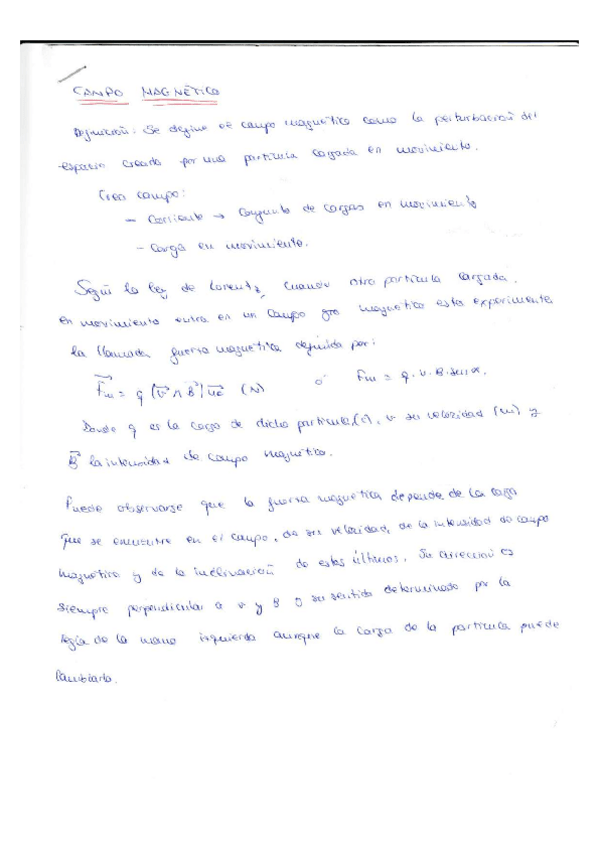 CAMPO MAGNÉTICO
Definición: Se define el campo magnético como la perturbación del
espacio creada por una partícula cargada en movimiento.
Crea campo:
- Corriente → Conjunto de cargas en movimiento
- Carga en movimiento.
Según la ley de Lorentz, cuando otra partícula cargada
en movimiento entra en un campo magnético esta experimenta
la llamada fuerza magnética definida por:
Fm = q (v ∧ B) (N) ó Fm = q · v · B · sen α.
Donde q es la carga de dicha partícula (C), v su velocidad (m) y
B la intensidad de campo magnético.
Puede observarse que la fuerza magnética depende de la carga
que se encuentre en el campo, de su velocidad, de la intensidad de campo
magnético y de la inclinación de estos últimos. Su dirección es
siempre perpendicular a v y B y su sentido determinado por la
regla de la mano izquierda aunque la carga de la partícula puede
cambiarlo.